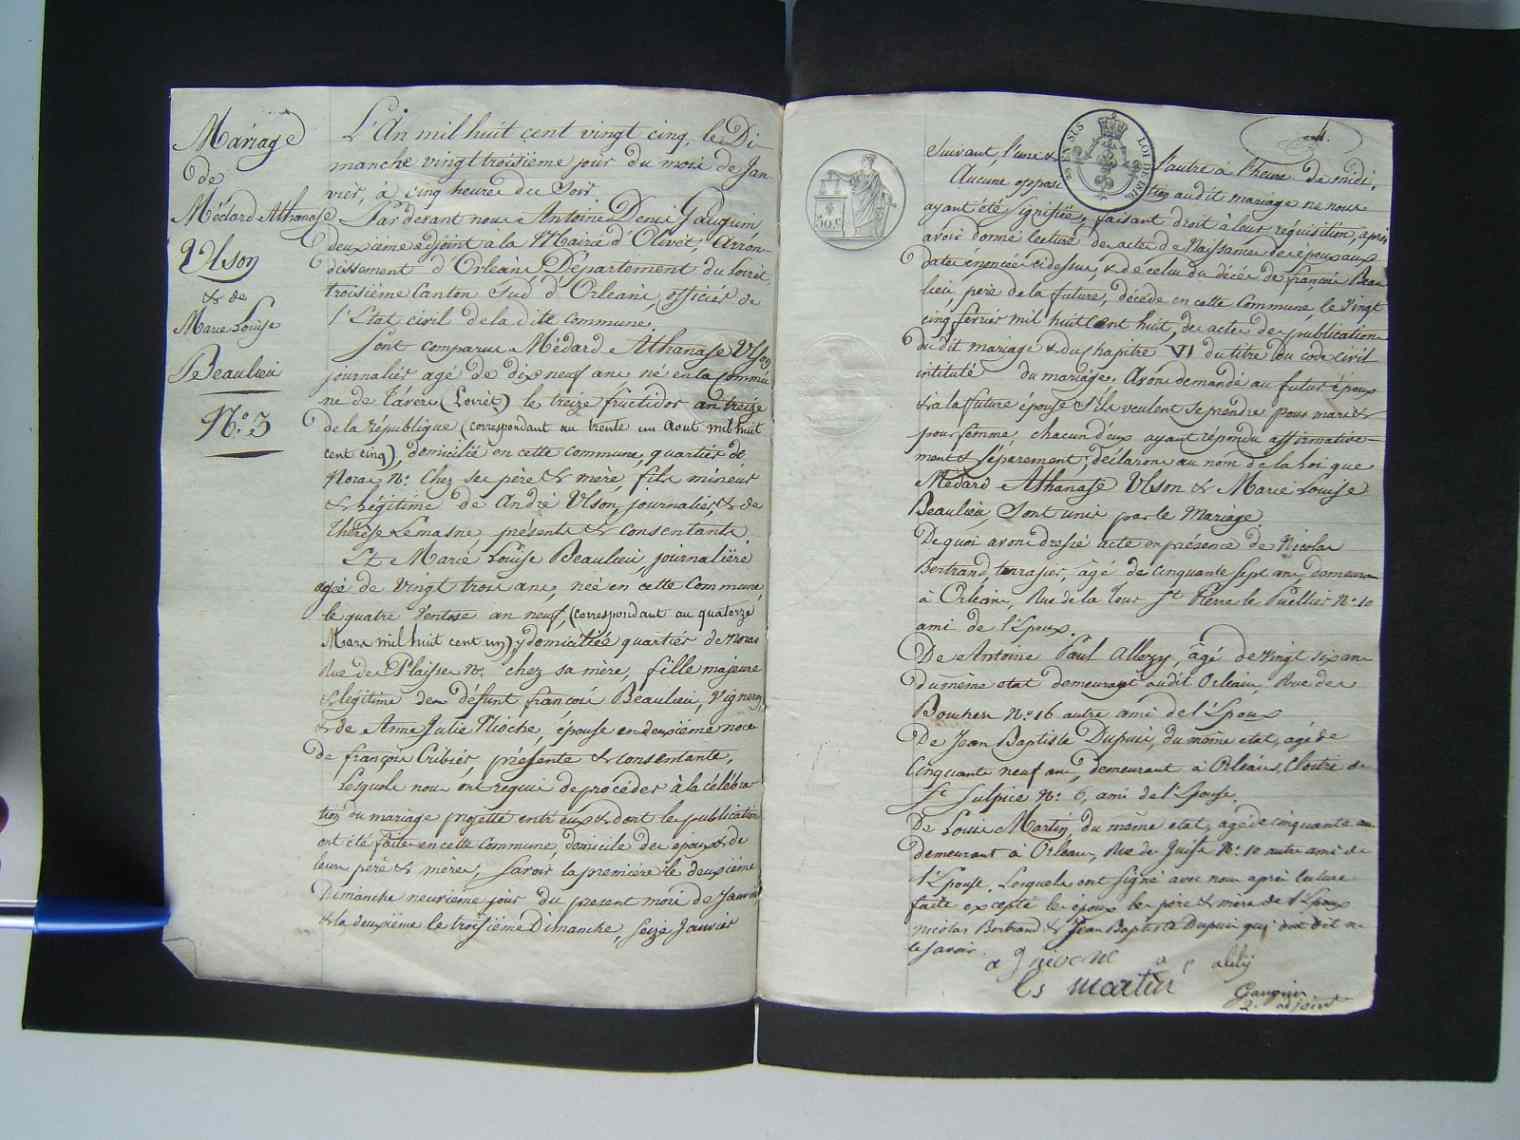 Mariage
de
Médard Athanase
Ulson
& de
Marie Louise
Beaulieu
N.o 3
L'An mil huit cent vingt cinq, le Di-
manche vingt troisième jour du mois de Jan-
vier, à cinq heures du Soir
Par devant nous Antoine Denis Gauguin
deuxième adjoint à la Mairie d'Olivet, Arron-
dissement d'Orléans, Département du Loiret,
troisième Canton Sud d'Orléans, officier de
l'Etat civil de la dite Commune.
Sont comparus Médard Athanase Ulson
journalier agé de dix neuf ans né en la Commu-
ne de Tavers (Loiret) le treize fructidor an treize
de la république (correspondant au trente un Aout mil huit
cent cinq), domicilié en cette commune, quartier de
Noras N.o chez ses père & mère, fils mineur
& légitime de André Ulson, journalier, & de
Thérèse Lemasne présents & consentants.
Et Marie Louise Beaulieu journalière
agée de vingt trois ans, née en cette Commune,
le quatre Ventose an neuf, (correspondant au quatorze
Mars mil huit cent un) domiciliée quartier de Noras
Rue de Plaisse N.o chez sa mère, fille majeure
& légitime de défunt françois Beaulieu, Vigneron,
& de Anne Julie Rioche épouse en deuxième noce
de françois Cribier, présente & consentante,
Lesquels nous ont requis de procéder à la célébra-
tion du mariage projetté entre eux & dont les publications
ont été faites en cette Commune domicile des époux & de
leurs père & mères, Savoir la première le deuxième
Dimanche neuvième jour du présent mois de Janvier
& la deuxième le troisième Dimanche, Seize Janvier
EN SUS
LOI DE 1816
50 C
suivant, l'une & l'autre à l'heure de midi.
Aucune opposition audit mariage ne nous
ayant été signifiée, faisant droit à leur réquisition, après
avoir donné lecture des actes de Naissance des époux aux
dates énoncées ci dessus, & de celui du décès de françois Beau
lieu père de la future, décédé en cette Commune, le Vingt
cinq fevrier mil huit Cent huit, des actes de publications
du dit mariage & du chapitre VI du titre du code civil
intitulé du mariage. Avons demandé au futur époux
& à la future épouse s'ils veulent se prendre pour mari &
pour femme, chacun d'eux ayant répondu affirmative-
ment & séparement; déclarons au nom de la loi que
Médard Athanase Ulson & Marie Louise
Beaulieu, Sont unis par le Mariage
De quoi avons dressé acte en présence de Nicolas
Bertrand, terrasier, âgé de cinquante sept ans, demeurant
à Orléans, Rue de la Tour St Pierre le Puellier N.o 10
ami de l'Epoux.
De Antoine Paul Allezy, âgé de vingt six ans
du même état demeurant audit Orléans, Rue des
Bouchers N.o 16 autre ami de l'Epoux
De Jean Baptiste Dupuis, du même état, agé de
Cinquante neuf ans, demeurant à Orléans, Cloitre de
St Sulpice N.o 6, ami de l'Epouse.
De Louis Martin, du même état, agé de cinquante ans
demeurant à Orléans, Rue de Guise N.o 10 autre ami de
l'Epouse. Lesquels ont signé avec nous après lecture
faite excepté les époux les père & mère de l'Epoux
Nicolas Bertrand & Jean Baptiste Dupuis qui ont dit ne
le savoir.
ls martin
Gauguin
2e adjoint